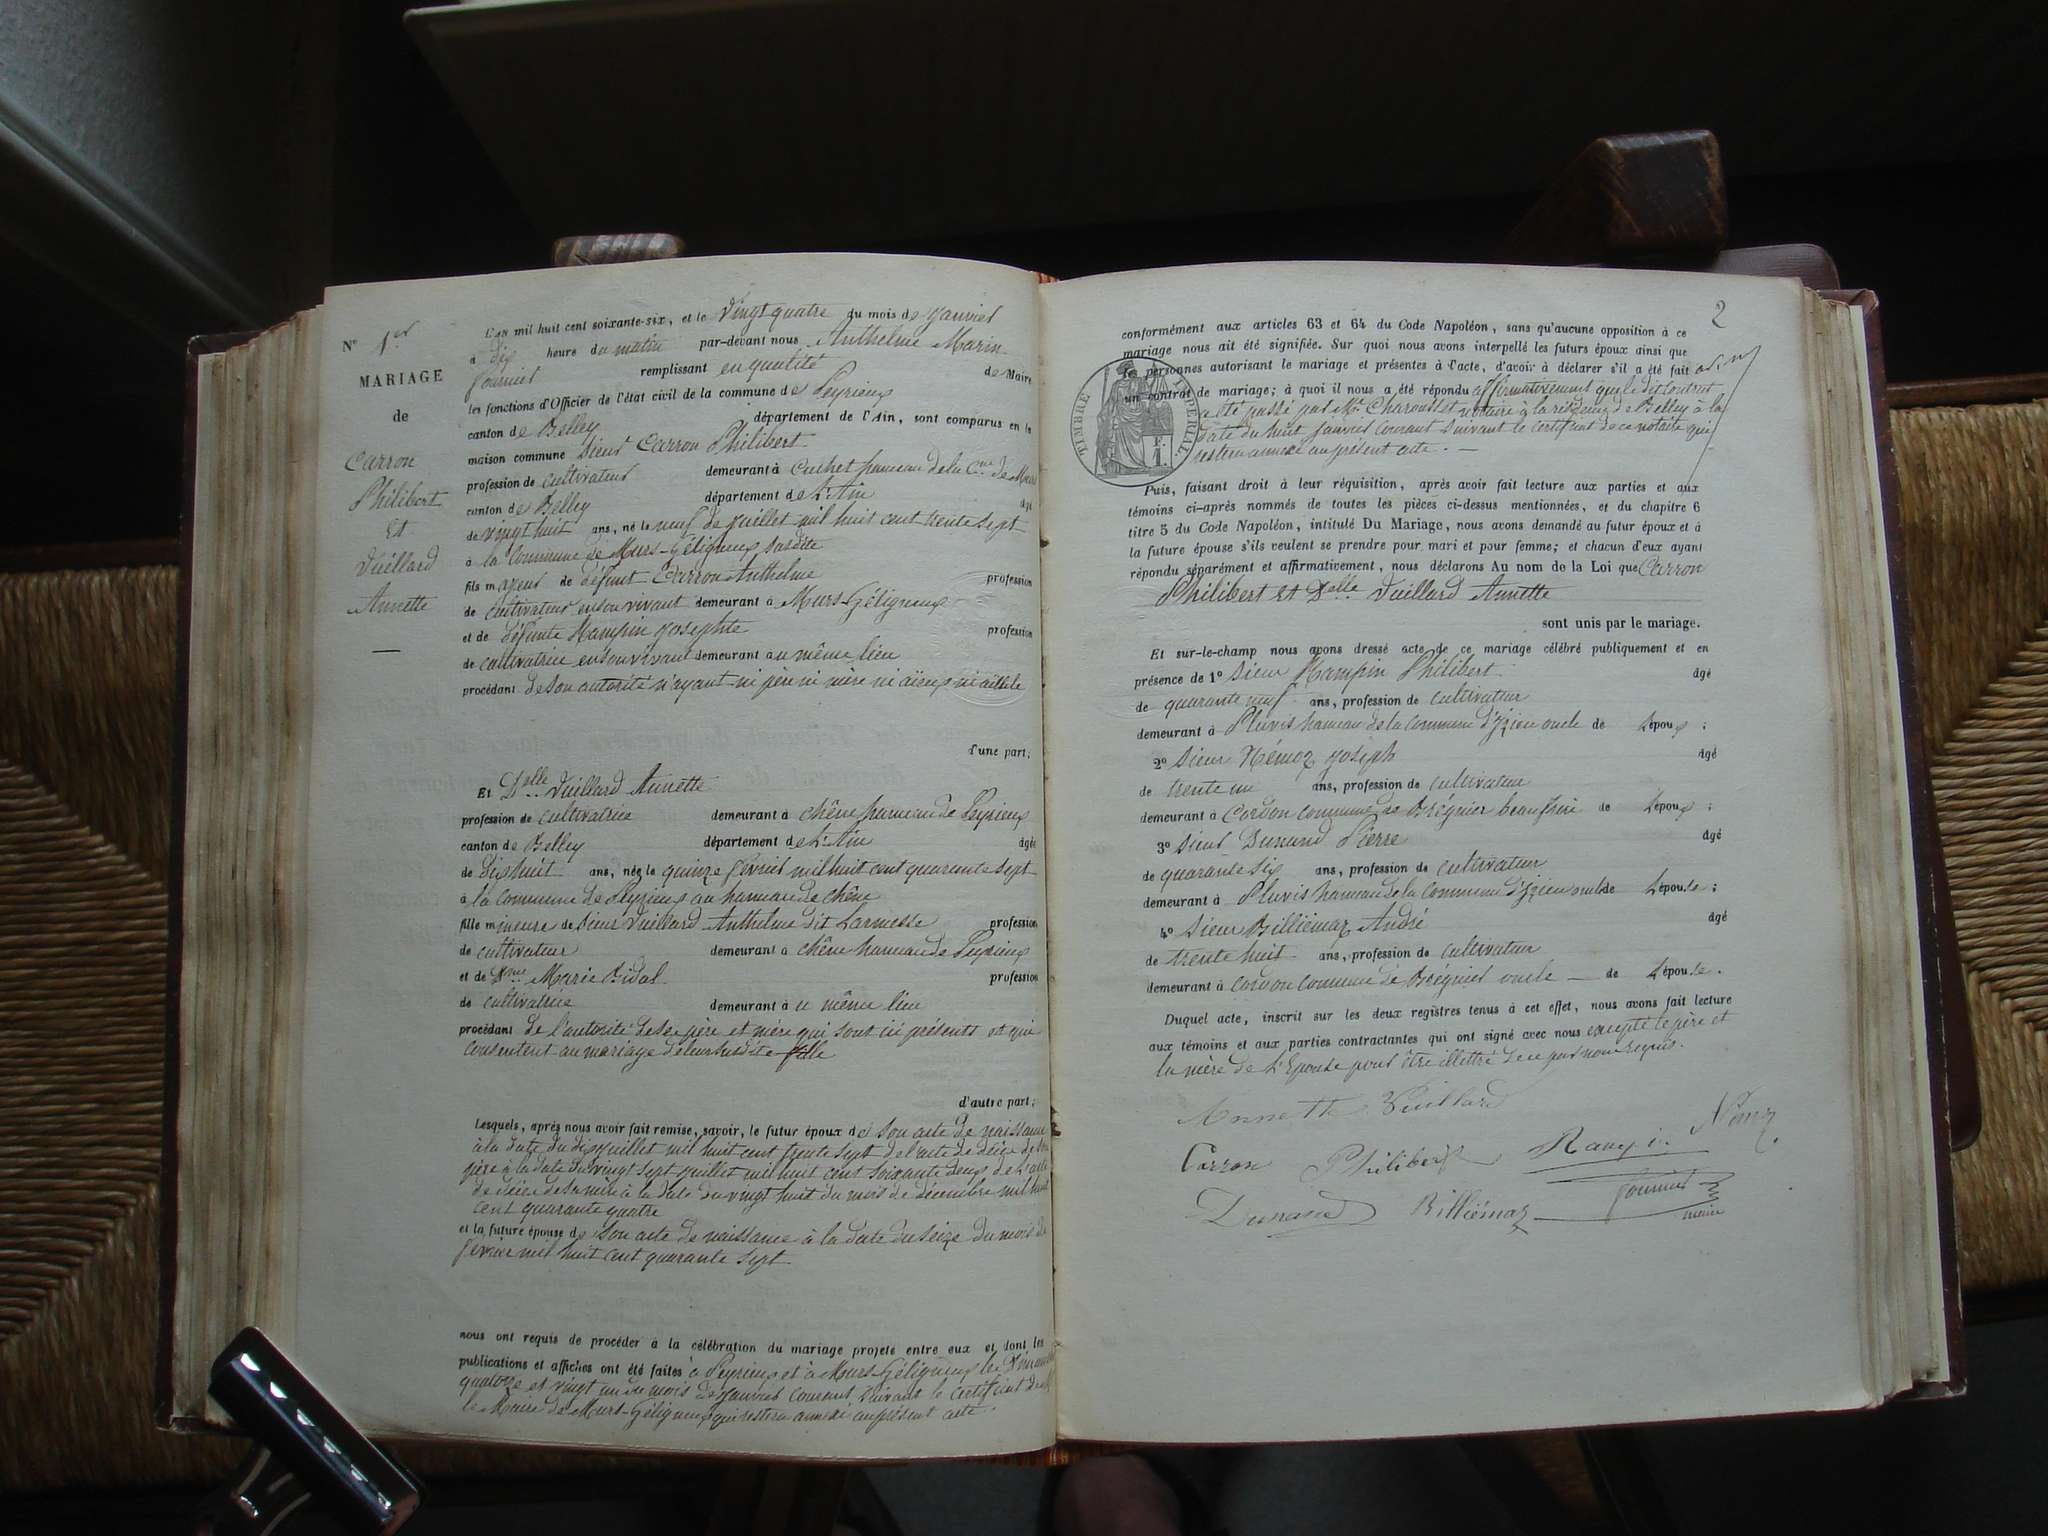 N° 1er
MARIAGE
de
Carron
Philibert
Et
Vuillard
Annette
L'an mil huit cent soixante-six, et le vingt quatre du mois de Janvier
à dix heure du matin par-devant nous Anthelme Marin
fournier remplissant en qualité de Maire
les fonctions d'Officier de l'état civil de la commune de Peyrieux
canton de Belley département de l'Ain, sont comparus en la
maison commune Sieur Carron Philibert
profession de cultivateur demeurant à Cuchet hameau de la Cne de Murs
canton de Belley département de L'Ain âgé
de vingt huit ans, né le neuf de Juillet mil huit cent trente sept
à la Commune de Murs-Géligneux susdite
fils majeur de défunt Carron Anthelme profession
de cultivateur en son vivant demeurant à Murs-Géligneux
et de défunte Rampin Josephte profession
de cultivatrice en son vivant demeurant au même lieu
procédant de son autorité n'ayant ni père ni mère ni aïeux ni aïeule
d'une part;
Et Delle Vuillard Annette
profession de cultivatrice demeurant à chêne hameau de Peyrieux
canton de Belley département de L'Ain âgée
de dix huit ans, née le quinze février mil huit cent quarante sept
à la commune de Peyrieux au hameau de chêne
fille mineure de Sieur Vuillard Anthelme dit Larmesse profession
de cultivateur demeurant à chêne hameau de Peyrieux
et de Dme Marie Vidal profession
de cultivatrice demeurant à u même lieu
procédant de l'autorité de ses père et mère qui sont ici présents et qui
consentent au mariage de leur susdite fille
d'autre part;
Lesquels, après nous avoir fait remise, savoir, le futur époux de son acte de naissance
à la date du dix Juillet mil huit cent trente sept de l'acte de décès de son
père à la date du vingt sept Juillet mil huit cent soixante deux de L'acte
de décès de sa mère à la date du vingt huit du mois de décembre mil huit
cent quarante quatre
et la future épouse de son acte de naissance à la date du seize du mois de
février mil huit cent quarante sept
nous ont requis de procéder à la célébration du mariage projeté entre eux et dont les
publications et affiches ont été faites à Peyrieux et à Murs-Géligneux les Dimanche
quatorze et vingt un du mois de Janvier courant suivant le certificat de
le Maire de Murs-Géligneux qui restera annexé au présent acte.
2
conformément aux articles 63 et 64 du Code Napoléon, sans qu'aucune opposition à ce
mariage nous ait été signifiée. Sur quoi nous avons interpellé les futurs époux ainsi que
les personnes autorisant le mariage et présentes à l'acte, d'avoir à déclarer s'il a été fait
un contrat de mariage; à quoi il nous a été répondu affirmativement que le dit contrat
a été passé par Me Charousset notaire à la résidence de Belley à la
date du huit Janvier courant suivant le certificat de ce notaire qui
restera annexé au présent acte. —
TIMBRE IMPERIAL
1 F.
Puis, faisant droit à leur réquisition, après avoir fait lecture aux parties et aux
témoins ci-après nommés de toutes les pièces ci-dessus mentionnées, et du chapitre 6
titre 5 du Code Napoléon, intitulé Du Mariage, nous avons demandé au futur époux et à
la future épouse s'ils veulent se prendre pour mari et pour femme; et chacun d'eux ayant
répondu séparément et affirmativement, nous déclarons Au nom de la Loi que Carron
Philibert et Delle Vuillard Annette
sont unis par le mariage.
Et sur-le-champ nous avons dressé acte de ce mariage célébré publiquement et en
présence de 1° Sieur Rampin Philibert âgé
de quarante neuf ans, profession de cultivateur
demeurant à Pluvis hameau de la commune d'Izieu oncle de L'époux;
2° Sieur Némoz Joseph âgé
de trente un ans, profession de cultivateur
demeurant à Cordon commune de Brégnier beau frère de L'époux;
3° Sieur Dunand Pierre âgé
de quarante six ans, profession de cultivateur
demeurant à Pluvis hameau de la commune d'Izieu oncle de L'épouse;
4° Sieur Billiémaz André âgé
de trente huit ans, profession de cultivateur
demeurant à Cordon commune de Brégnier oncle — de L'épouse.
Duquel acte, inscrit sur les deux registres tenus à cet effet, nous avons fait lecture
aux témoins et aux parties contractantes qui ont signé avec nous excepté le père et
la mère de L'Epouse pour être illettré de ce par nous requis.
Annette Vuillard
Carron Philibert Rampin Némoz
Dunand Billiémaz fournier
maire